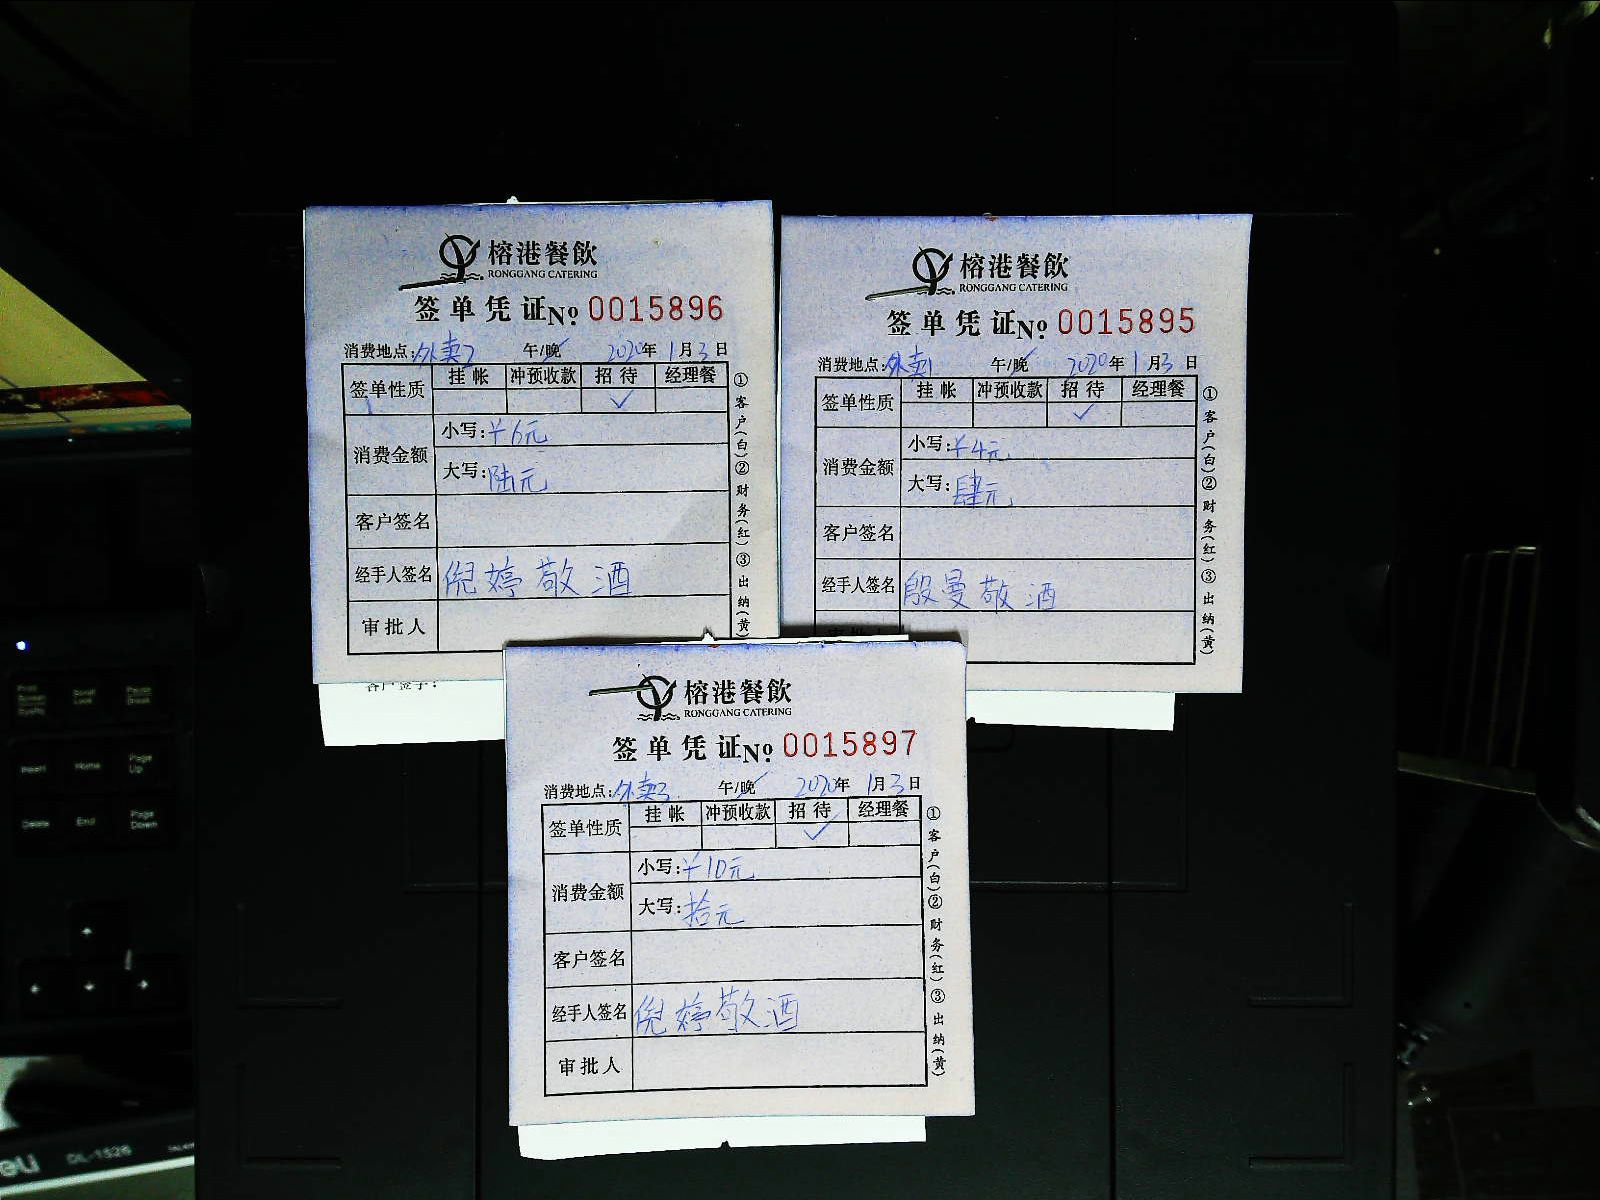 榕港餐飲
RONGGANG CATERING
签单凭证№ 0015896
消费地点:外卖2 午/晚 2020年1月3日
签单性质 挂帐 冲预收款 招待 经理餐
✓
消费金额 小写:¥6元
大写:陆元
客户签名
经手人签名 倪婷敬酒
审批人
①客户(白)②财务(红)③出纳(黄)
客户签字:
榕港餐飲
RONGGANG CATERING
签单凭证№ 0015895
消费地点:外卖1 午/晚 2020年1月3日
签单性质 挂帐 冲预收款 招待 经理餐
✓
消费金额 小写:¥4元
大写:肆元
客户签名
经手人签名 殷曼敬酒
①客户(白)②财务(红)③出纳(黄)
榕港餐飲
RONGGANG CATERING
签单凭证№ 0015897
消费地点:外卖3 午/晚 2020年1月3日
签单性质 挂帐 冲预收款 招待 经理餐
✓
消费金额 小写:¥10元
大写:拾元
客户签名
经手人签名 倪婷敬酒
审批人
①客户(白)②财务(红)③出纳(黄)
Insert Home Page Up
Delete End Page Down
DL-1526